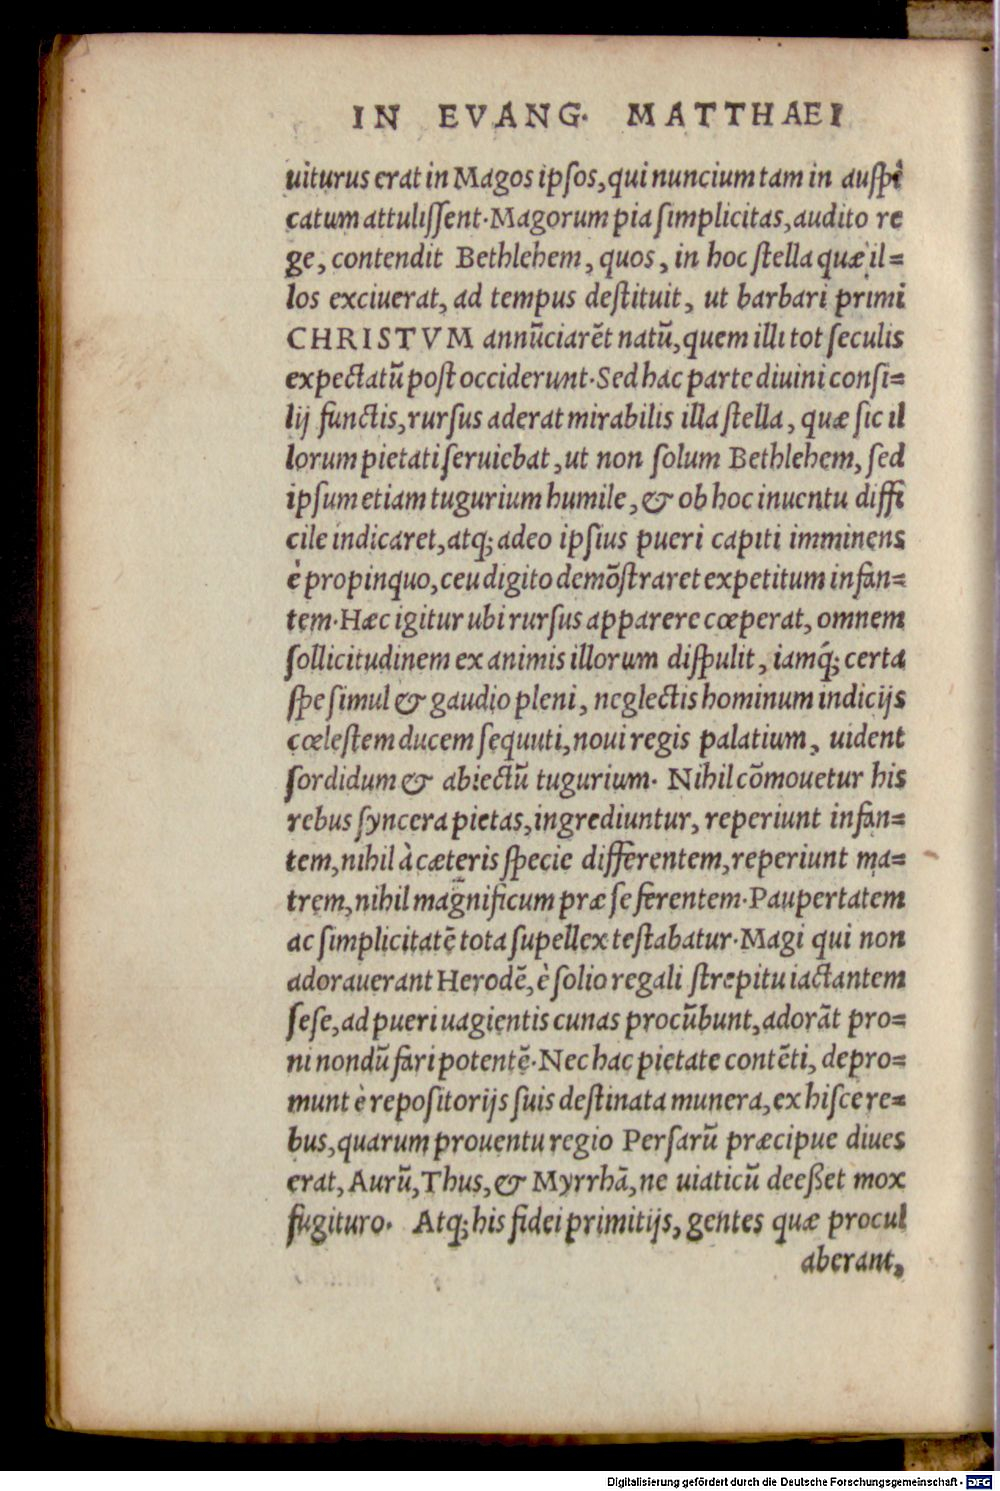 IN EVANG. MATTHAEI
uiturus erat in Magos ipsos, qui nuncium tam in auspi
catum attulissent. Magorum pia simplicitas, audito re
ge, contendit Bethlehem, quos, in hoc stella quæ il=
los exciuerat, ad tempus destituit, ut barbari primi
CHRISTVM annũciarẽt natũ, quem illi tot seculis
expectatũ post occiderunt. Sed hac parte diuini consi=
lij functis, rursus aderat mirabilis illa stella, quæ sic il
lorum pietati seruiebat, ut non solum Bethlehem, sed
ipsum etiam tugurium humile, & ob hoc inuentu diffi
cile indicaret, atq; adeo ipsius pueri capiti imminens
è propinquo, ceu digito demõstraret expetitum infan=
tem. Hæc igitur ubi rursus apparere cœperat, omnem
sollicitudinem ex animis illorum dispulit, iamq́; certa
spe simul & gaudio pleni, neglectis hominum indicijs
cœlestem ducem sequuti, noui regis palatium, uident
sordidum & abiectũ tugurium. Nihil cõmouetur his
rebus syncera pietas, ingrediuntur, reperiunt infan=
tem, nihil à cæteris specie differentem, reperiunt ma=
trem, nihil magnificum præ se ferentem. Paupertatem
ac simplicitatẽ tota supellex testabatur. Magi qui non
adorauerant Herodẽ, è solio regali strepitu iactantem
sese, ad pueri uagientis cunas procũbunt, adorãt pro=
ni nondũ fari potentẽ. Nec hac pietate contẽti, depro=
munt è repositorijs suis destinata munera, ex hisce re=
bus, quarum prouentu regio Persarũ præcipue diues
erat, Aurũ, Thus, & Myrrhã, ne uiaticũ deeßet mox
fugituro. Atq; his fidei primitijs, gentes quæ procul
aberant,
Digitalisierung gefördert durch die Deutsche Forschungsgemeinschaft - DFG